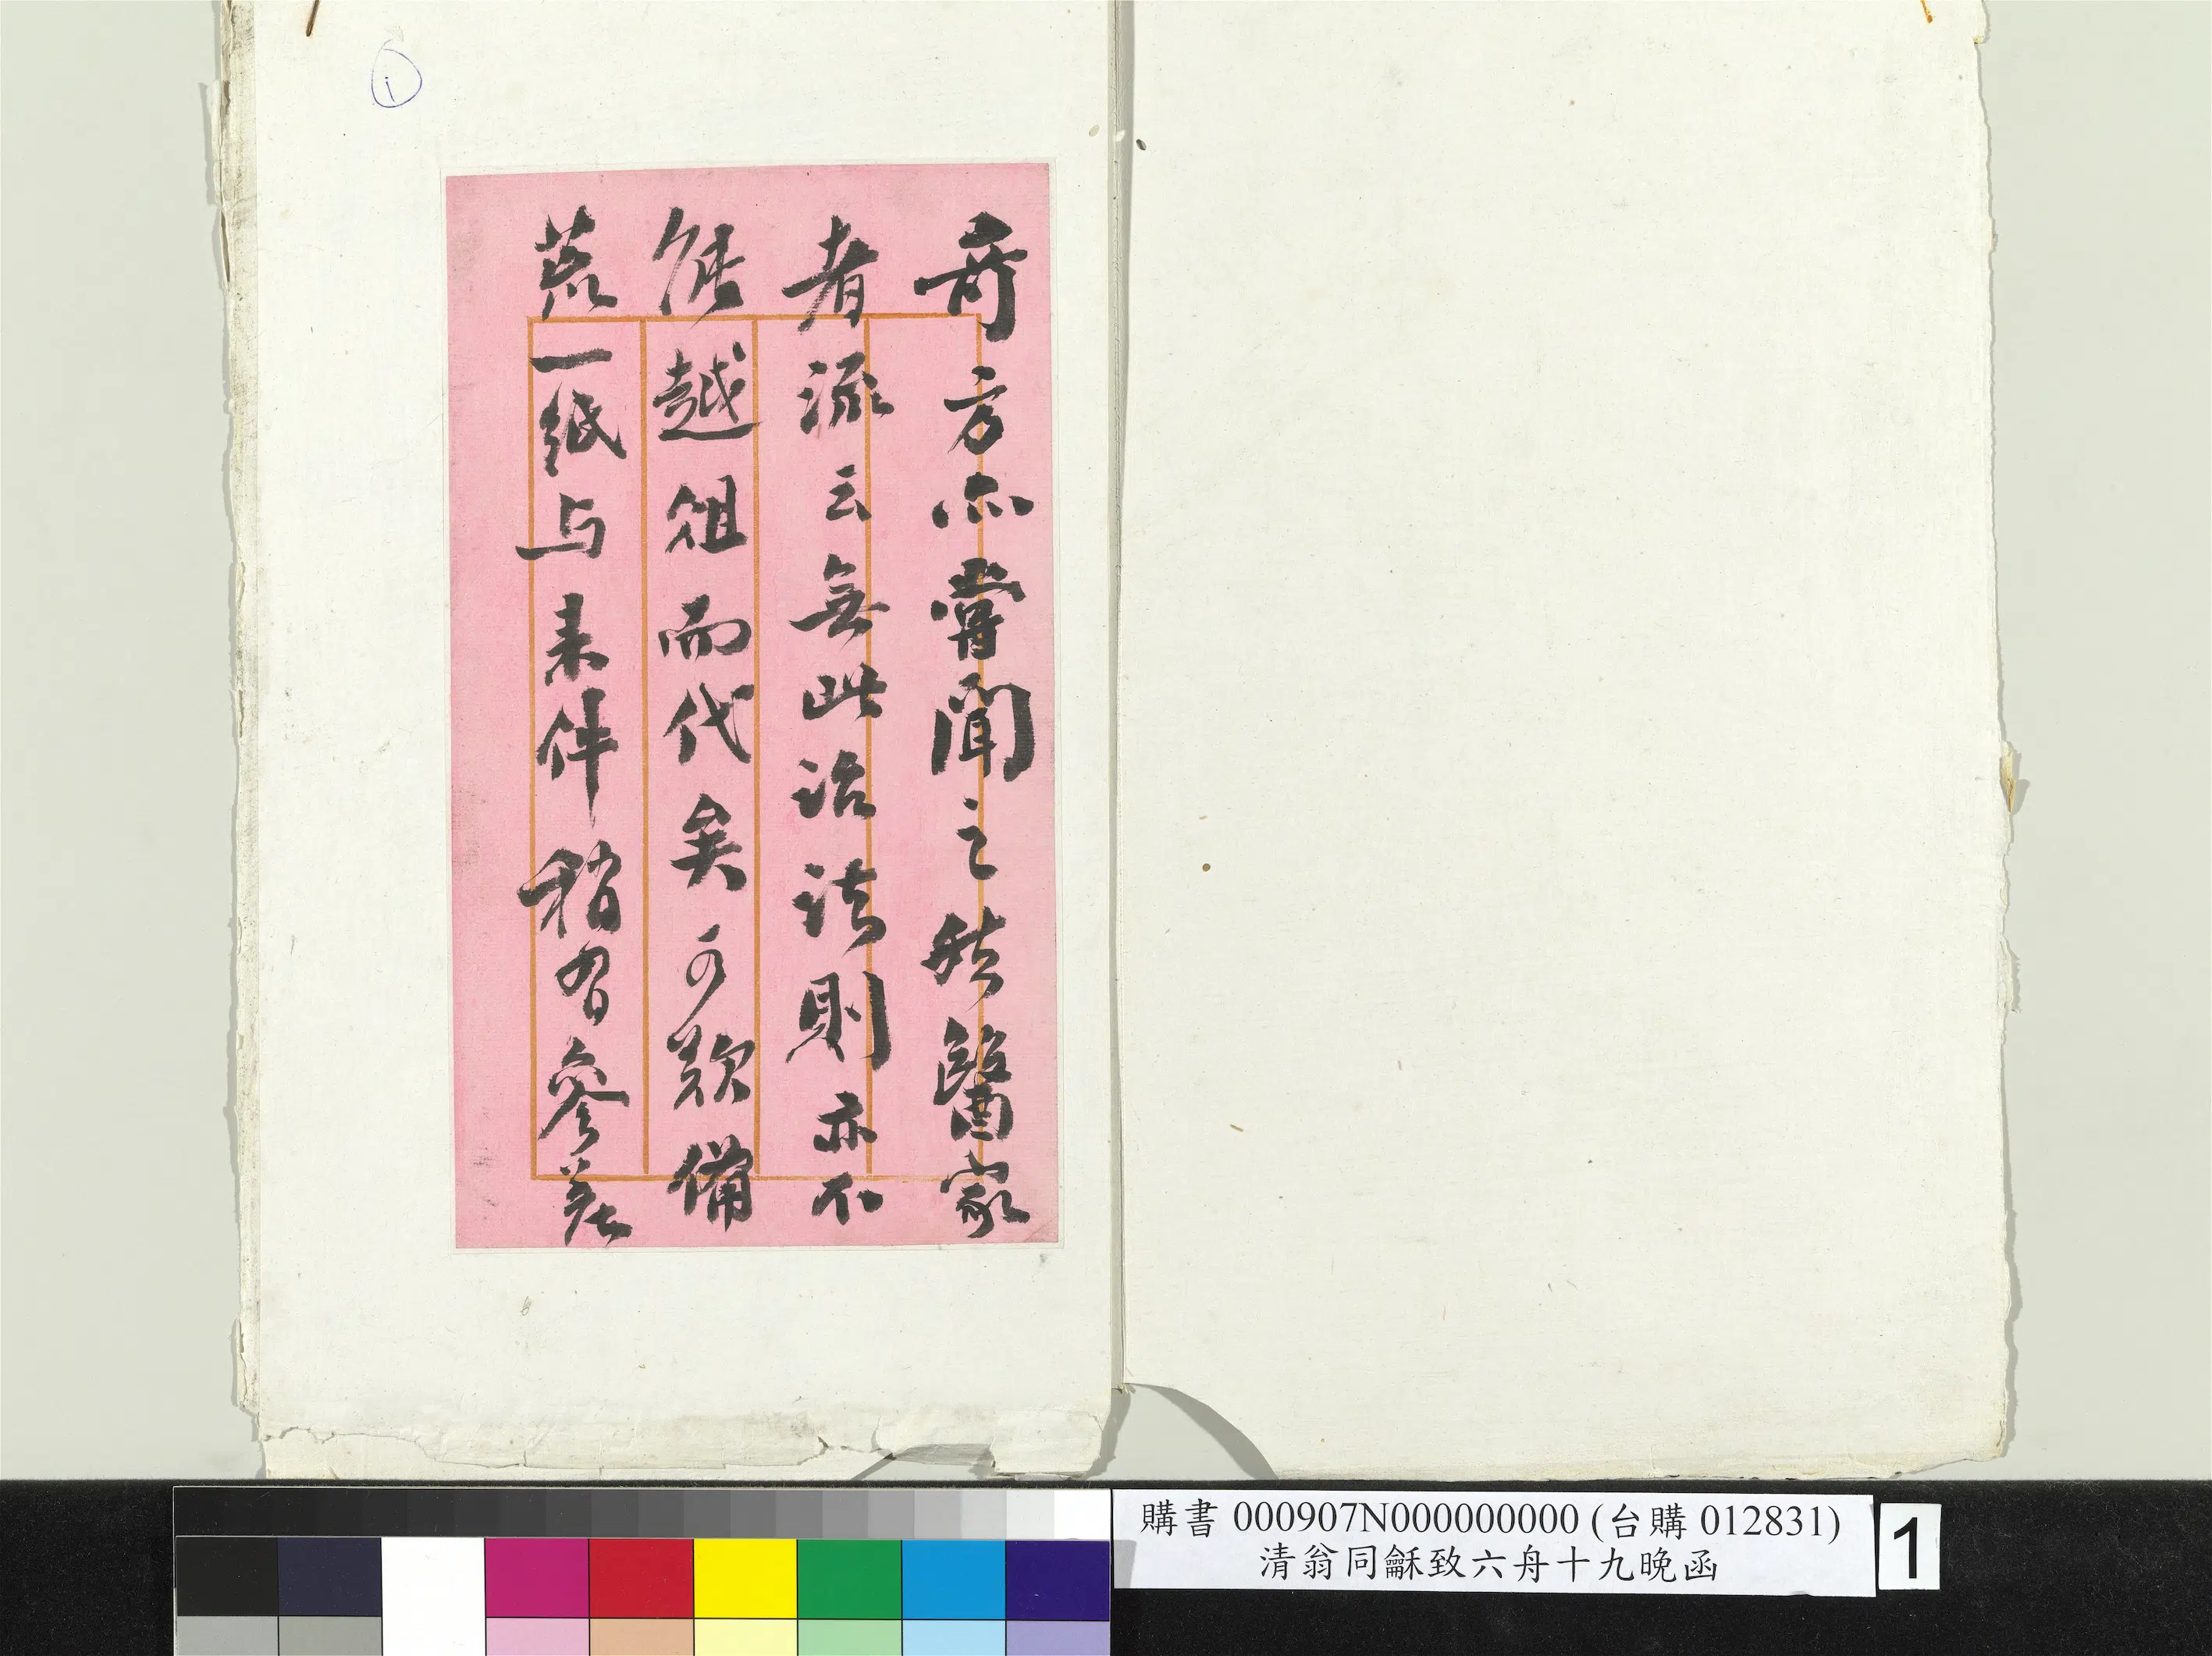 奇方亦嘗聞之然醫家
者流云無此治法則亦不
能越俎而代矣手欵備
荒一紙与来件稍有參差
購書 000907N000000000 (台購 012831)
清翁同龢致六舟十九晚函
1